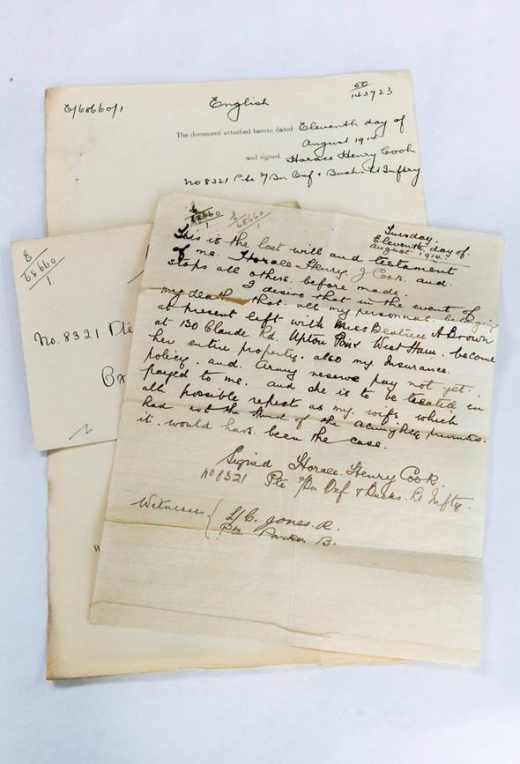 E/68660/1
English
E0
143723
The document attached hereto dated Eleventh day of
August 1914
and signed Horace Henry Cook
No 8321 Pte Bn Oxf & Bucks Lt Inftry
E
68660
1.
No. 8321 Pte
E
68660
1.
E
68660
1.
Tuesday.
Eleventh day of.
August 1914.
This is the last will and testament
of me. Horace. Henry. J Cook. and.
stops all others. before made.
I desire that in the event of
my death that. all my personal
at present left with Miss Beatrice A Brown
at 150 Claude Rd. Upton Park West Ham. become
her entire property. also my. Insurance.
policy. and. Army reserve pay not yet.
payed to me. and she is to be treated in
all possible respect as my wife which
had not the hand of the almighty prevented.
it. would have been the case.
Signed Horace. Henry Cook.
No 8321 Pte Bn Oxf & Bucks. Lt Inftry.
Witnesses { L/C. Jones. R.
Pte Parker B.